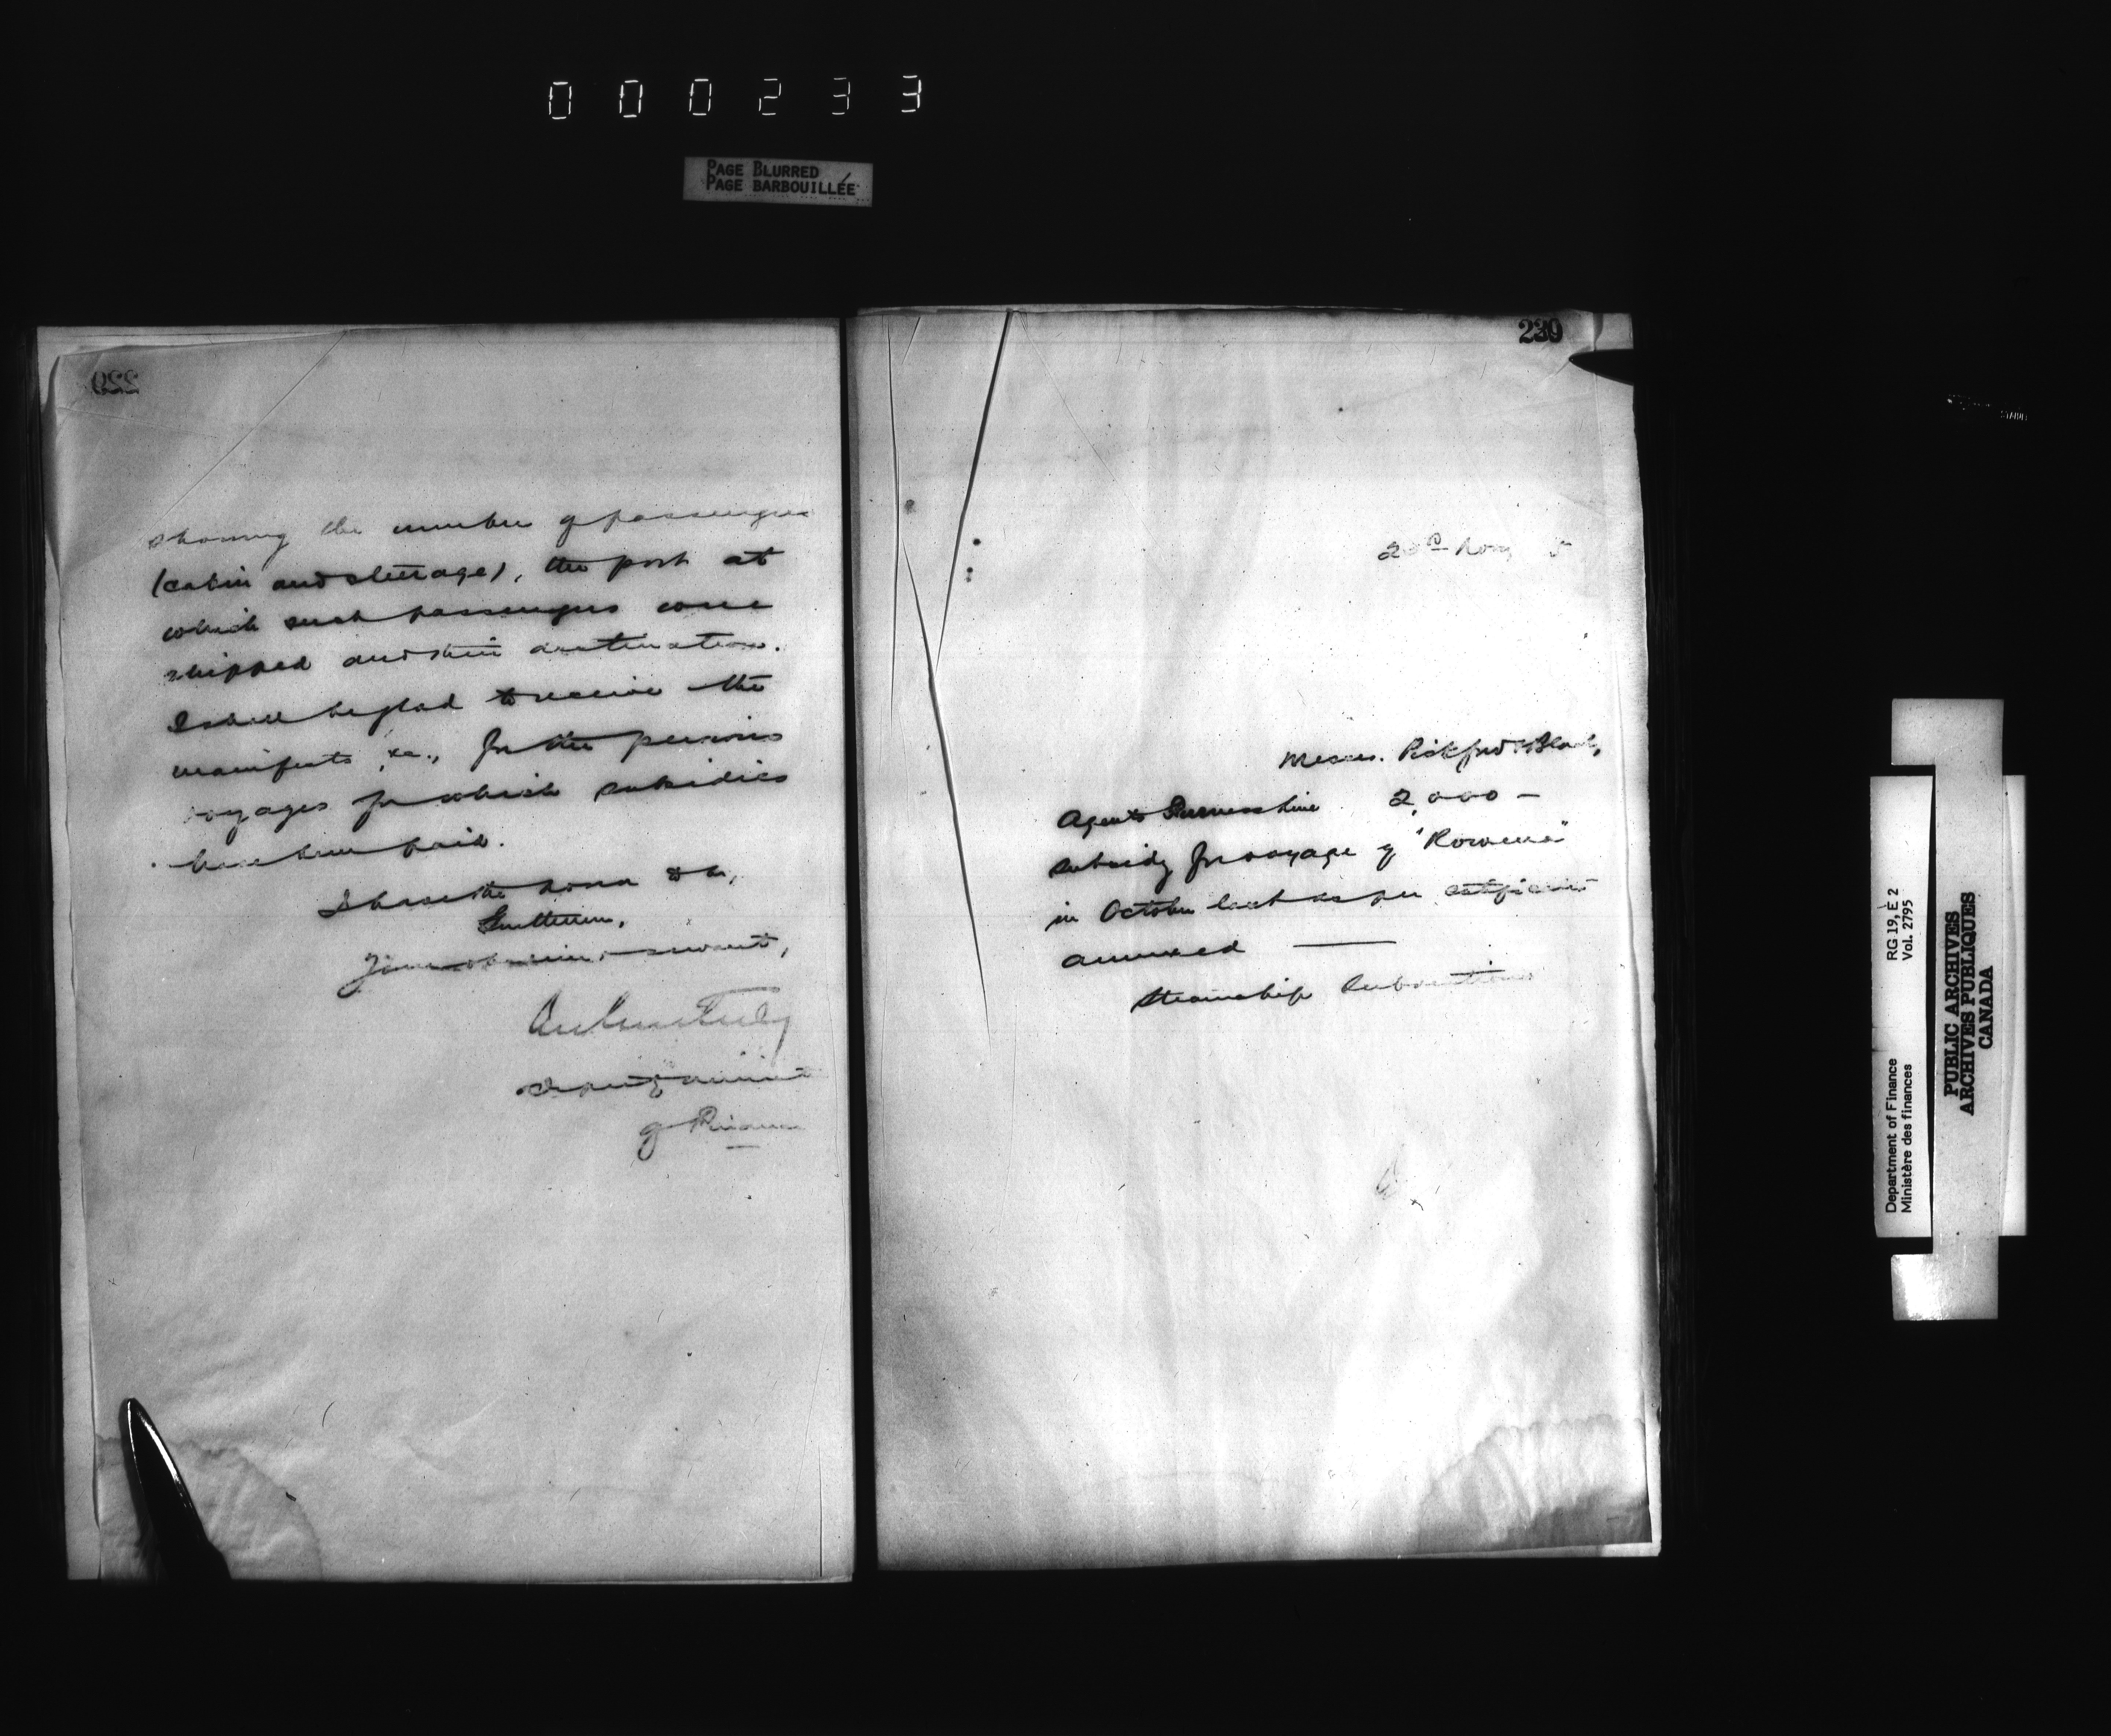 000233
PAGE BLURRED
PAGE BARBOUILLÉE
229
showing the number of passengers
(cabin and steerage), the port at
which such passengers were
shipped and their destination.
I shall be glad to receive the
manifests, &c., for the previous
voyages for which subsidies
have been paid.
I have the honor to be,
Gentlemen,
Your obedient servant,
Deputy Minister
of Finance
239
Nov 5
Messrs. Pickford & Black,
Agents Furness Line 2,000 —
subsidy for voyage of "Rowena"
in October last as per certificate
annexed ——
Steamship Subventions
STABLE
Department of Finance RG 19, E 2
Ministère des finances Vol. 2795
PUBLIC ARCHIVES
ARCHIVES PUBLIQUES
CANADA